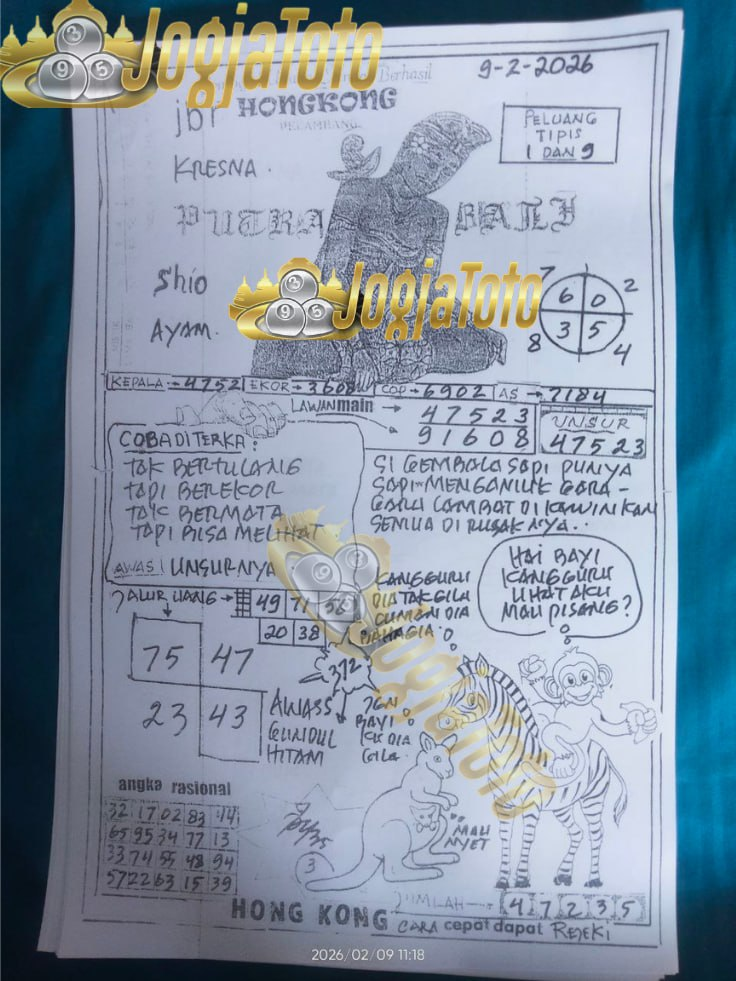 JogjaToto
Berhasil
9-2-2026
HONGKONG
PELUANG
TIPIS
1 DAN 9
KRESNA.
PUTRA BALI
JogjaToto
Shio
AYAM.
7
2
6 0
3 5
8
4
KEPALA → 4752 EKOR → 3608 COP → 6902 AS → 7184
LAWAN main → 47523
→ 91608
UNSUR
47523
COBA DITERKA:
TAK BERTULANG
TAPI BEREKOR
TAK BERMATA
TAPI BISA MELIHAT..
AWAS! UNSURNYA
SI GEMBALA SAPI PUNYA
SAPI MENGAMUK GARA-
GARA LAMBAT DI KAWINKAN
SEMUA DI RUSAKNYA..
HAI BAYI
KANGGURU
LIHAT AKU
MAU PISANG?
KANGGURU
DIA TAK GILA
CUMAN DIA
BAHAGIA
JALUR UANG → 49 71
20 38
372
75 47
23 43
AWASS
GUNDUL
HITAM
JGN
BAYI
KU DIA
GILA.
JogjaToto
angka rasional
32 17 02 83 44
65 95 34 77 13
33 74 55 48 94
57 22 63 15 39
3
MAU
NYET
JUMLAH → 4 7 2 3 5
HONG KONG CARA cepat dapat REJEKI
2026/02/09 11:18